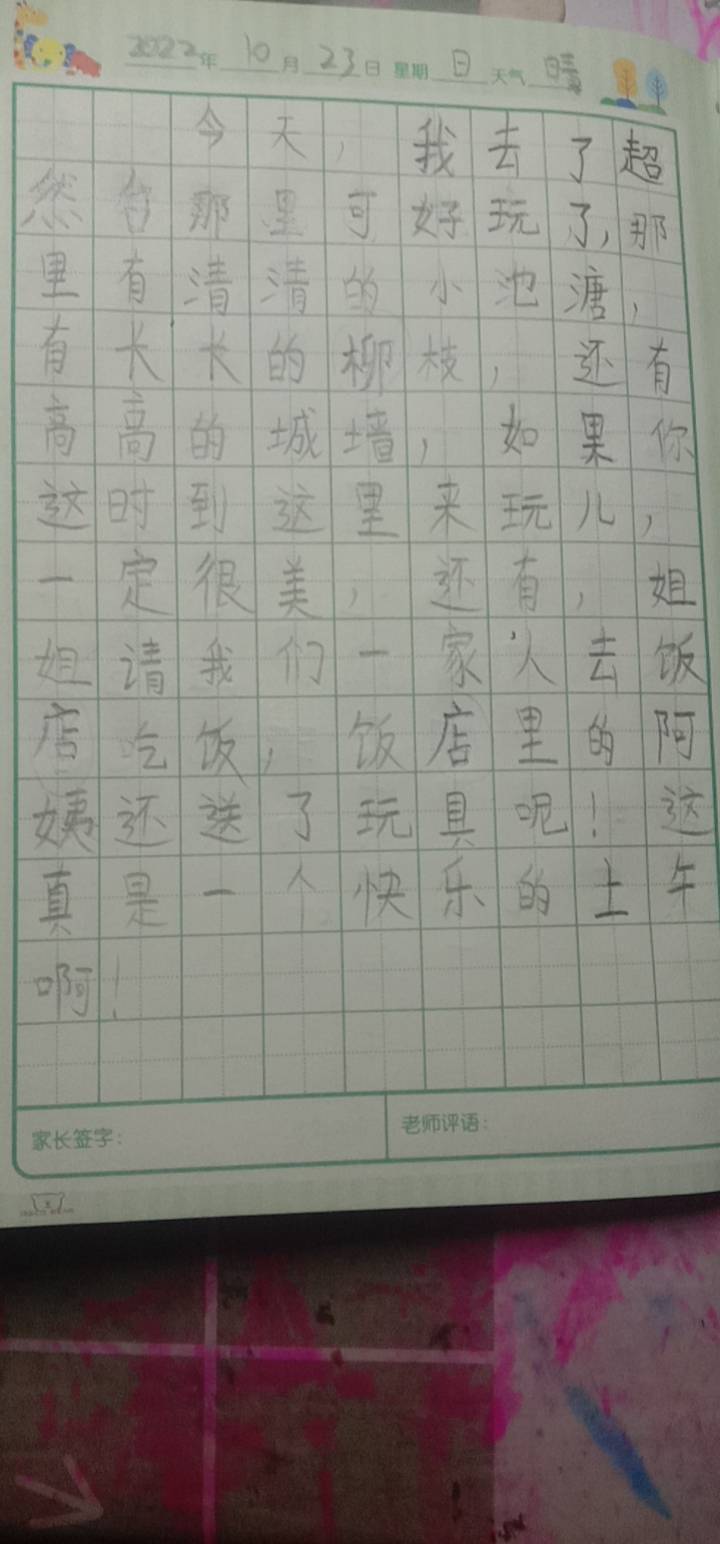 2022年10月23日 星期日 天气晴
今天，我去了超
然台那里可好玩了，那
里有清清的小池溏，
有长长的柳枝，还有
高高的城墙，如果你
这时到这里来玩儿，
一定很美，还有，姐
姐请我们一家人去饭
店吃饭，饭店里的阿
姨还送了玩具呢！这
真是一个快乐的土午
啊！
家长签字：
老师评语：